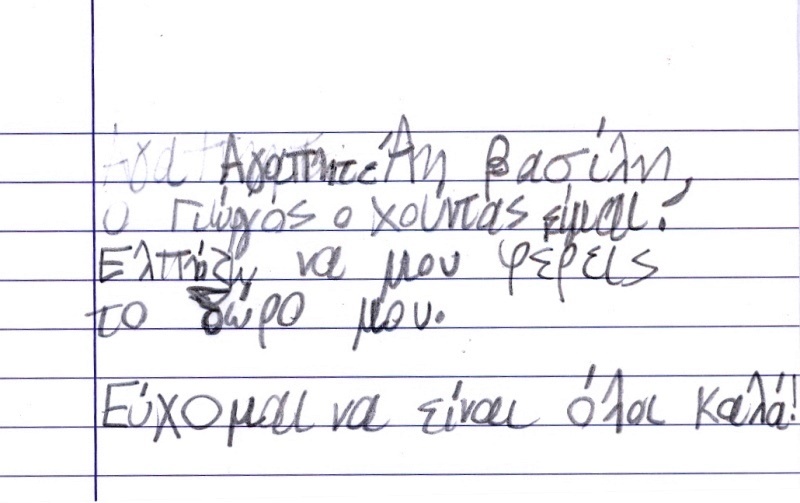 Αγαπητέ Άη βασίλη,
ο Γιώργός ο χούντάς είμαι!
Ελπήζω να μου φέρεις
το δώρο μου.
Εύχομαι να είναι όλα καλά!